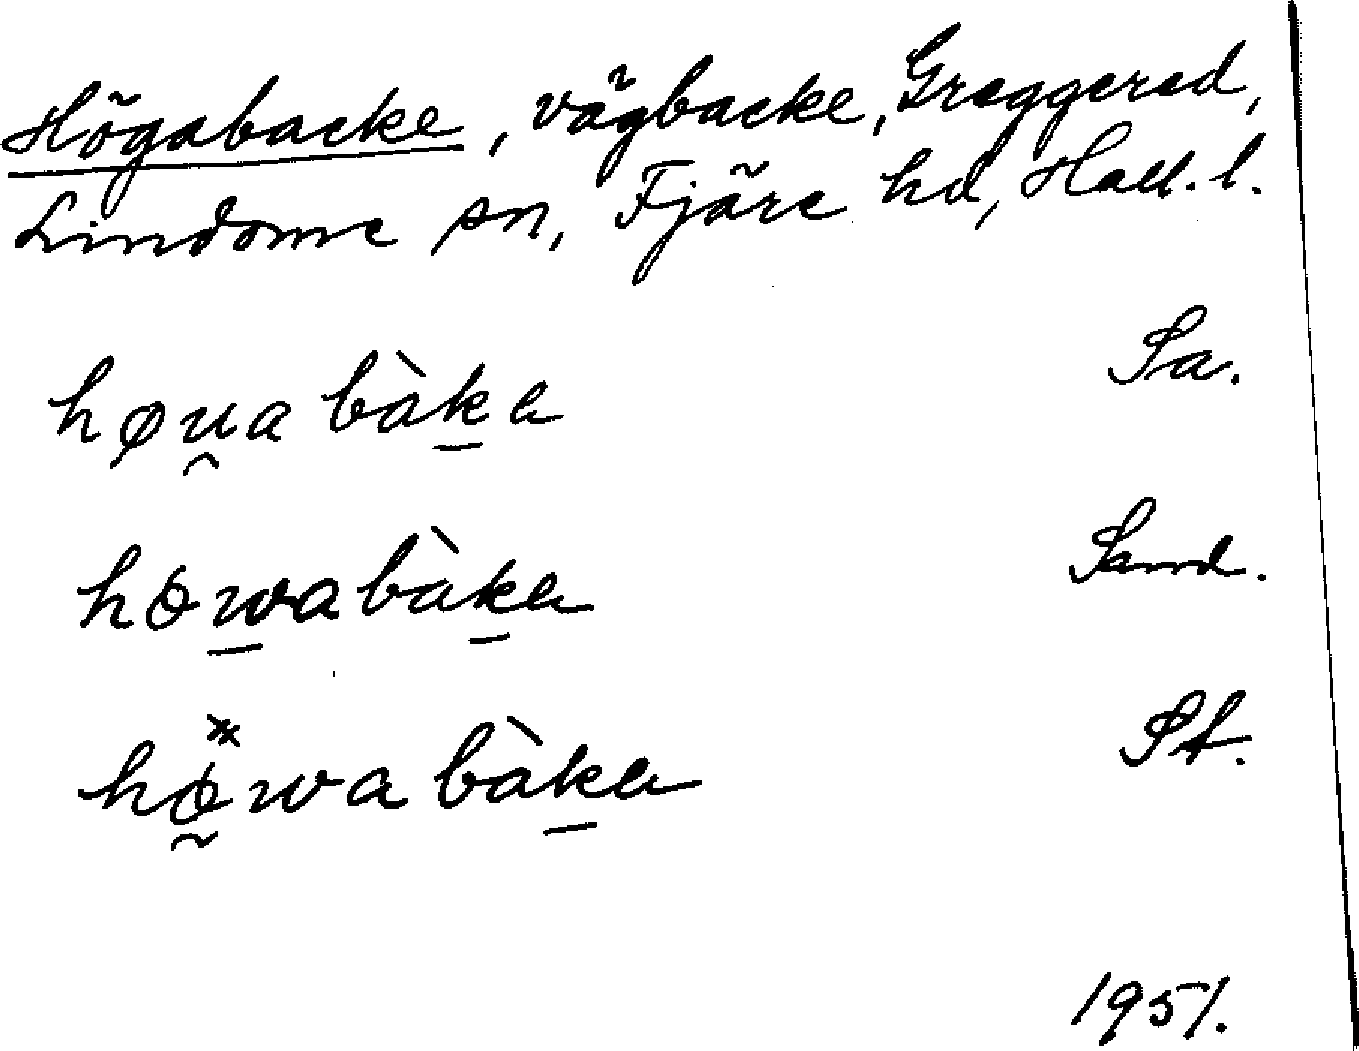 Högabacke, vägbacke, Greggered,
Lindome sn, Fjäre hd, Hall. l.
hǫu̯a bàk̲a Sa.
høw̲abàk̲a Sand.
hø̰wa bàk̲a St.
1951.